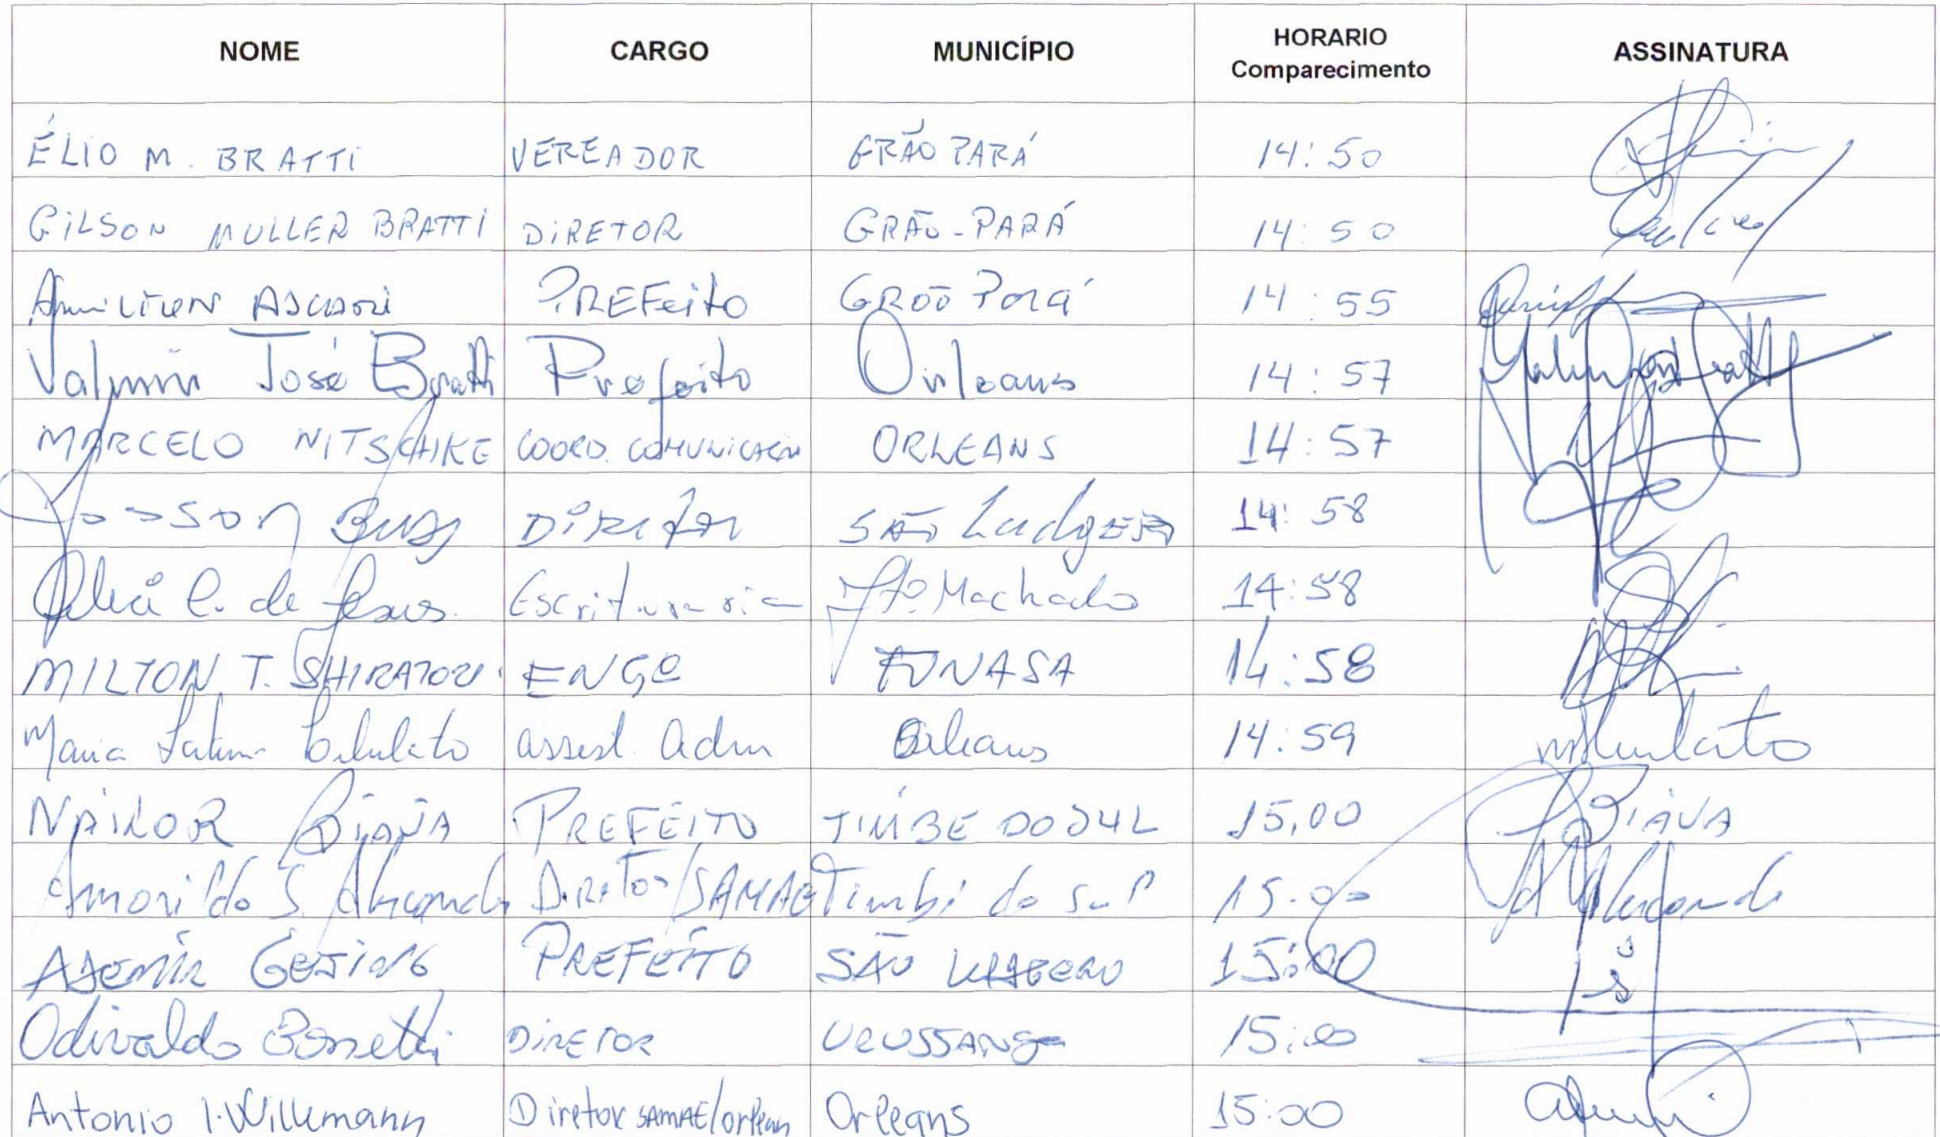 NOME CARGO MUNICÍPIO HORARIO Comparecimento ASSINATURA
ÉLIO M. BRATTI VEREADOR GRÃO PARÁ 14:50
GILSON MULLER BRATTI DIRETOR GRÃO-PARÁ 14:50
Amilton Ascari PREFeito GRÃO Pará 14:55
Valmir José Bratti Prefeito Orleans 14:57
MARCELO NITSCHKE COORD. COMUNICAÇÃO ORLEANS 14:57
Joosson Buss DIRETOR SÃO Ludgero 14:58
C. de Jesus. Escrituraria Jto. Machado 14:58
MILTON T. SHIRATORI ENGº FUNASA 14:58
Maria Fatima assest. Adm Orleans 14:59
NAILOR BIAVA PREFEITO TIMBE DO SUL 15,00 BIAVA
Amorildo S. Diretor/SAMAE Timbé do Sul 15:00
ADEMIR GESING PREFEITO SÃO LUDGERO 15:00
Odivaldo Bonetti DIRETOR URUSSANGA 15:00
Antonio I. Willemann Diretor SAMAE/orleans Orleans 15:00